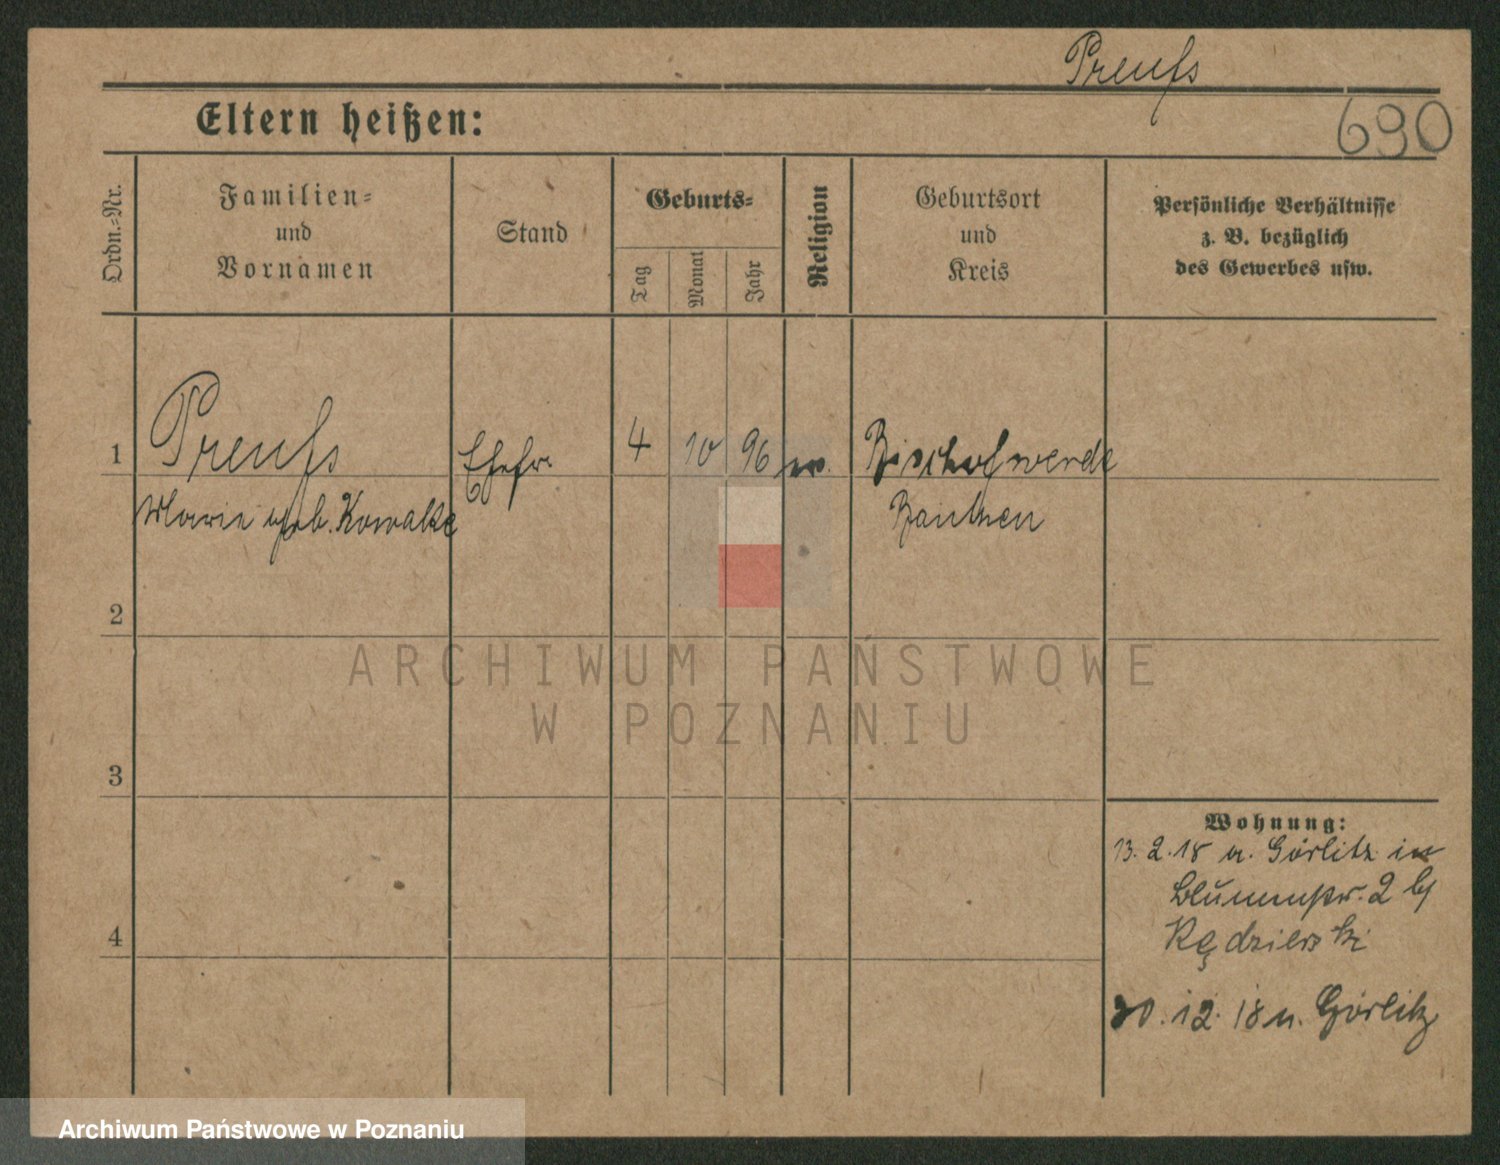 Preuſs
690
Eltern heißen:
Ordn.-Nr.
Familien-
und
Vornamen
Stand
Geburts-
Tag
Monat
Jahr
Religion
Geburtsort
und
Kreis
Persönliche Verhältnisse
z. B. bezüglich
des Gewerbes usw.
1
Preuſs
Ehefr.
4
10
96
ev.
Bischofswerde
Marie geb. Kowalke
Bautzen
2
3
4
Wohnung:
13. 2. 18 a. Görlitz in
Blumenstr. 2 bj
Kędzierski
20. 12. 18 n. Görlitz
ARCHIWUM PAŃSTWOWE
W POZNANIU
Archiwum Państwowe w Poznaniu